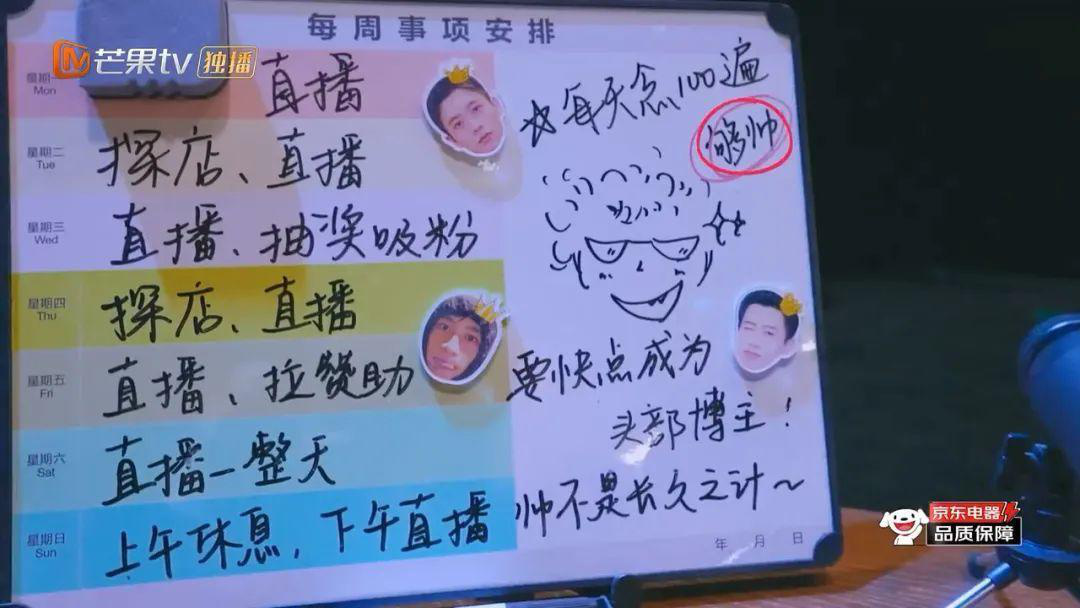 每周事项安排
芒果tv 独播
星期一
Mon
直播
星期二
Tue
探店、直播
星期三
Wed
直播、抽奖吸粉
星期四
Thu
探店、直播
星期五
Fri
直播、拉赞助
星期六
Sat
直播一整天
星期日
Sun
上午休息，下午直播
☆每天念100遍
够帅
要快点成为
头部博主！
帅不是长久之计～
年 月 日
京东电器
品质保障